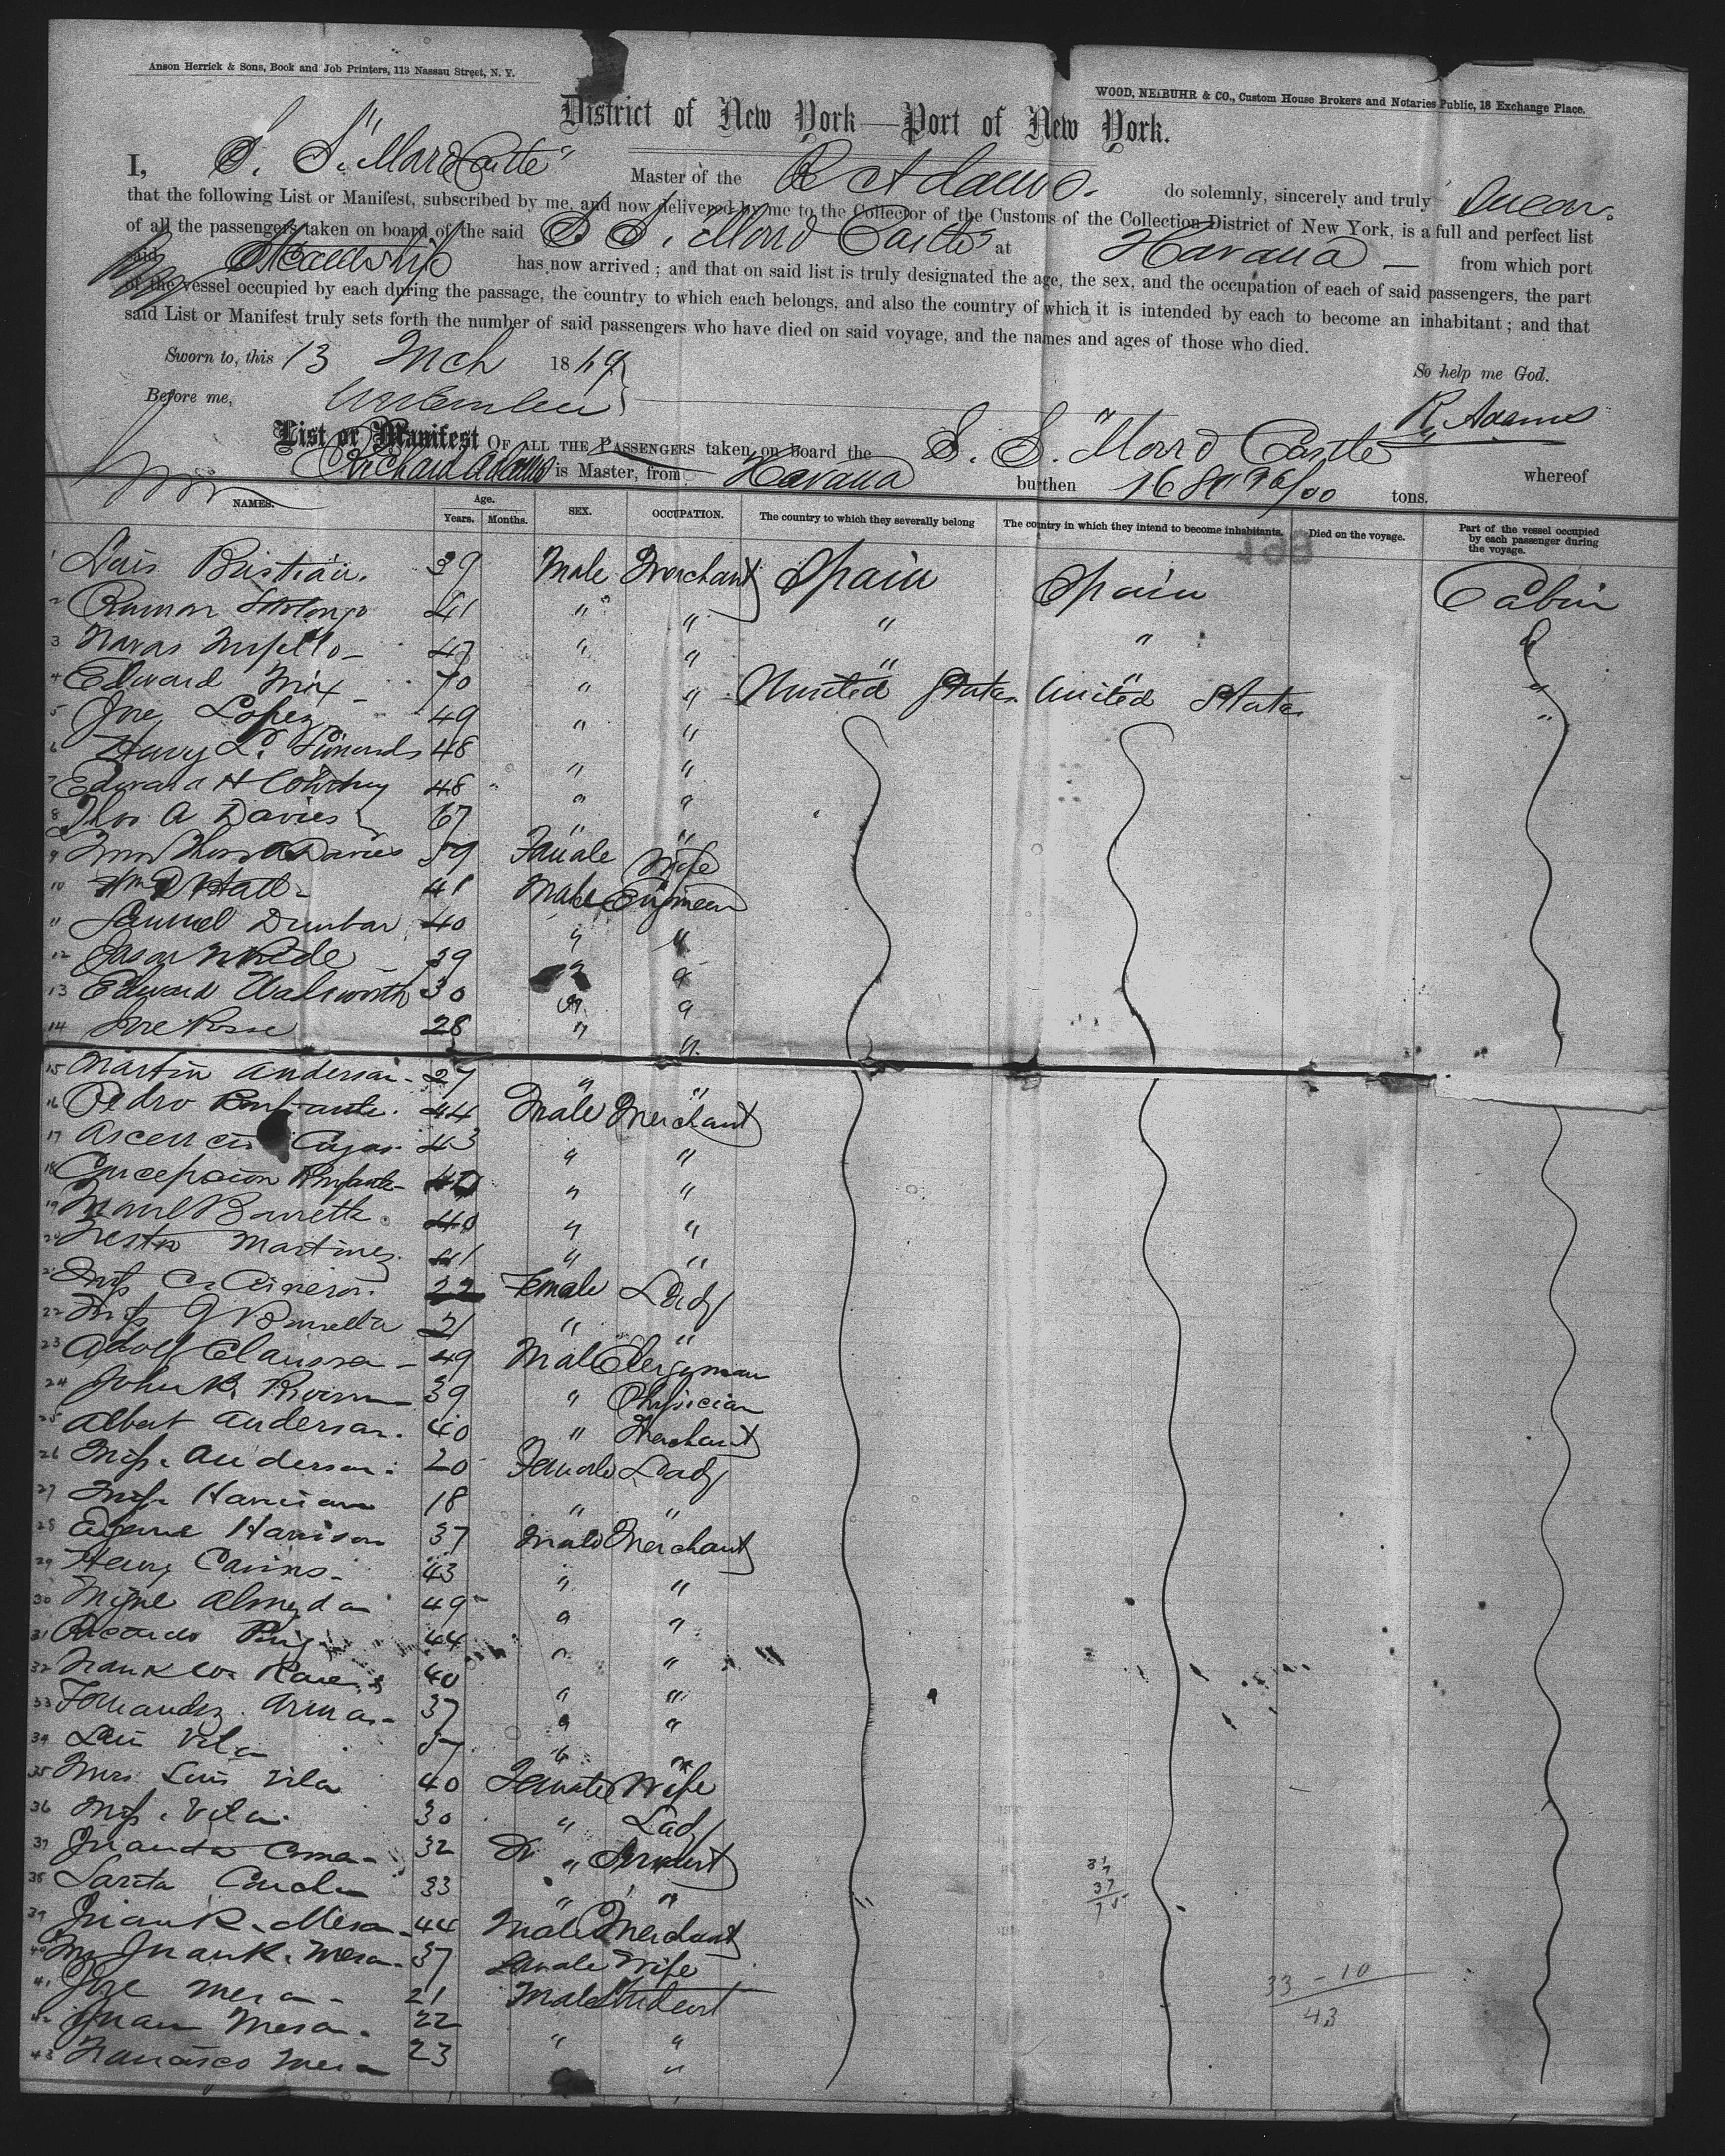 Anson Herrick & Sons, Book and Job Printers, 113 Nassau Street, N. Y.
WOOD, NEIBUHR & CO., Custom House Brokers and Notaries Public, 18 Exchange Place.
District of New York—Port of New York.
I, S. S. "Morro Castle" Master of the R Adams. do solemnly, sincerely and truly Swear.
that the following List or Manifest, subscribed by me, and now delivered by me to the Collector of the Customs of the Collection District of New York, is a full and perfect list
of all the passengers taken on board of the said S. S. "Morro Castle" at Havana — from which port
said Steamship has now arrived ; and that on said list is truly designated the age, the sex, and the occupation of each of said passengers, the part
of the vessel occupied by each during the passage, the country to which each belongs, and also the country of which it is intended by each to become an inhabitant ; and that
said List or Manifest truly sets forth the number of said passengers who have died on said voyage, and the names and ages of those who died.
Sworn to, this 13 Mch 1869 So help me God.
Before me, R. Adams
List or Manifest OF ALL THE PASSENGERS taken on board the S. S. "Morro Castle" whereof
Richard Adams is Master, from Havana burthen 1680 96/00 tons.
NAMES. Age. Years. Months. SEX. OCCUPATION. The country to which they severally belong The country in which they intend to become inhabitants. Died on the voyage. Part of the vessel occupied by each passenger during the voyage.
1 Luis Bustian. 39 Male Merchant Spain Spain Cabin
2 Ramon 41 " " " "
3 Navas 47 " " " "
4 Edward Mix 70 " " United States United States "
5 Jose Lopez 49 " "
6 Henry L. 48 " "
7 Edward H 48 " "
8 Thos A Davies 67 " "
9 Mrs Thos A Davies 59 Female Wife
10 Wm D Hall 41 Male Engineer
11 Samuel Dunbar 40 " "
12 Jason 39 " "
13 Edward Walsworth 30 " "
14 Jose 28 " "
15 Martin Anderson 27 " "
16 Pedro 44 Male Merchant
17 43 " "
18 Concepcion 40 " "
19 40 " "
20 Nestor Martinez. 41 " "
21 Miss C. 22 Female Lady
22 Miss 21 " "
23 Adolf 49 Male Clergyman
24 John 39 " Physician
25 Albert Anderson. 40 " Merchant
26 Miss. Anderson. 20 Female Lady
27 Miss 18 " "
28 Harrison 37 Male Merchant
29 Henry 43 " "
30 49 " "
31 Ricardo Puig 44 " "
32 Frank W. 40 " "
33 Fernandez 37 " "
34 Luis Vila " "
35 Mrs Luis Vila 40 Female Wife
36 Miss. Vila 30 " Lady
37 32 " Servant
38 Sarita 33 " "
39 Juan R. Mesa 44 Male Merchant
40 Mrs Juan R. Mesa 37 Female Wife
41 Jose Mesa 21 Male Student
42 Juan Mesa. 22 " "
43 Francisco Mesa 23 "
33 - 10
43